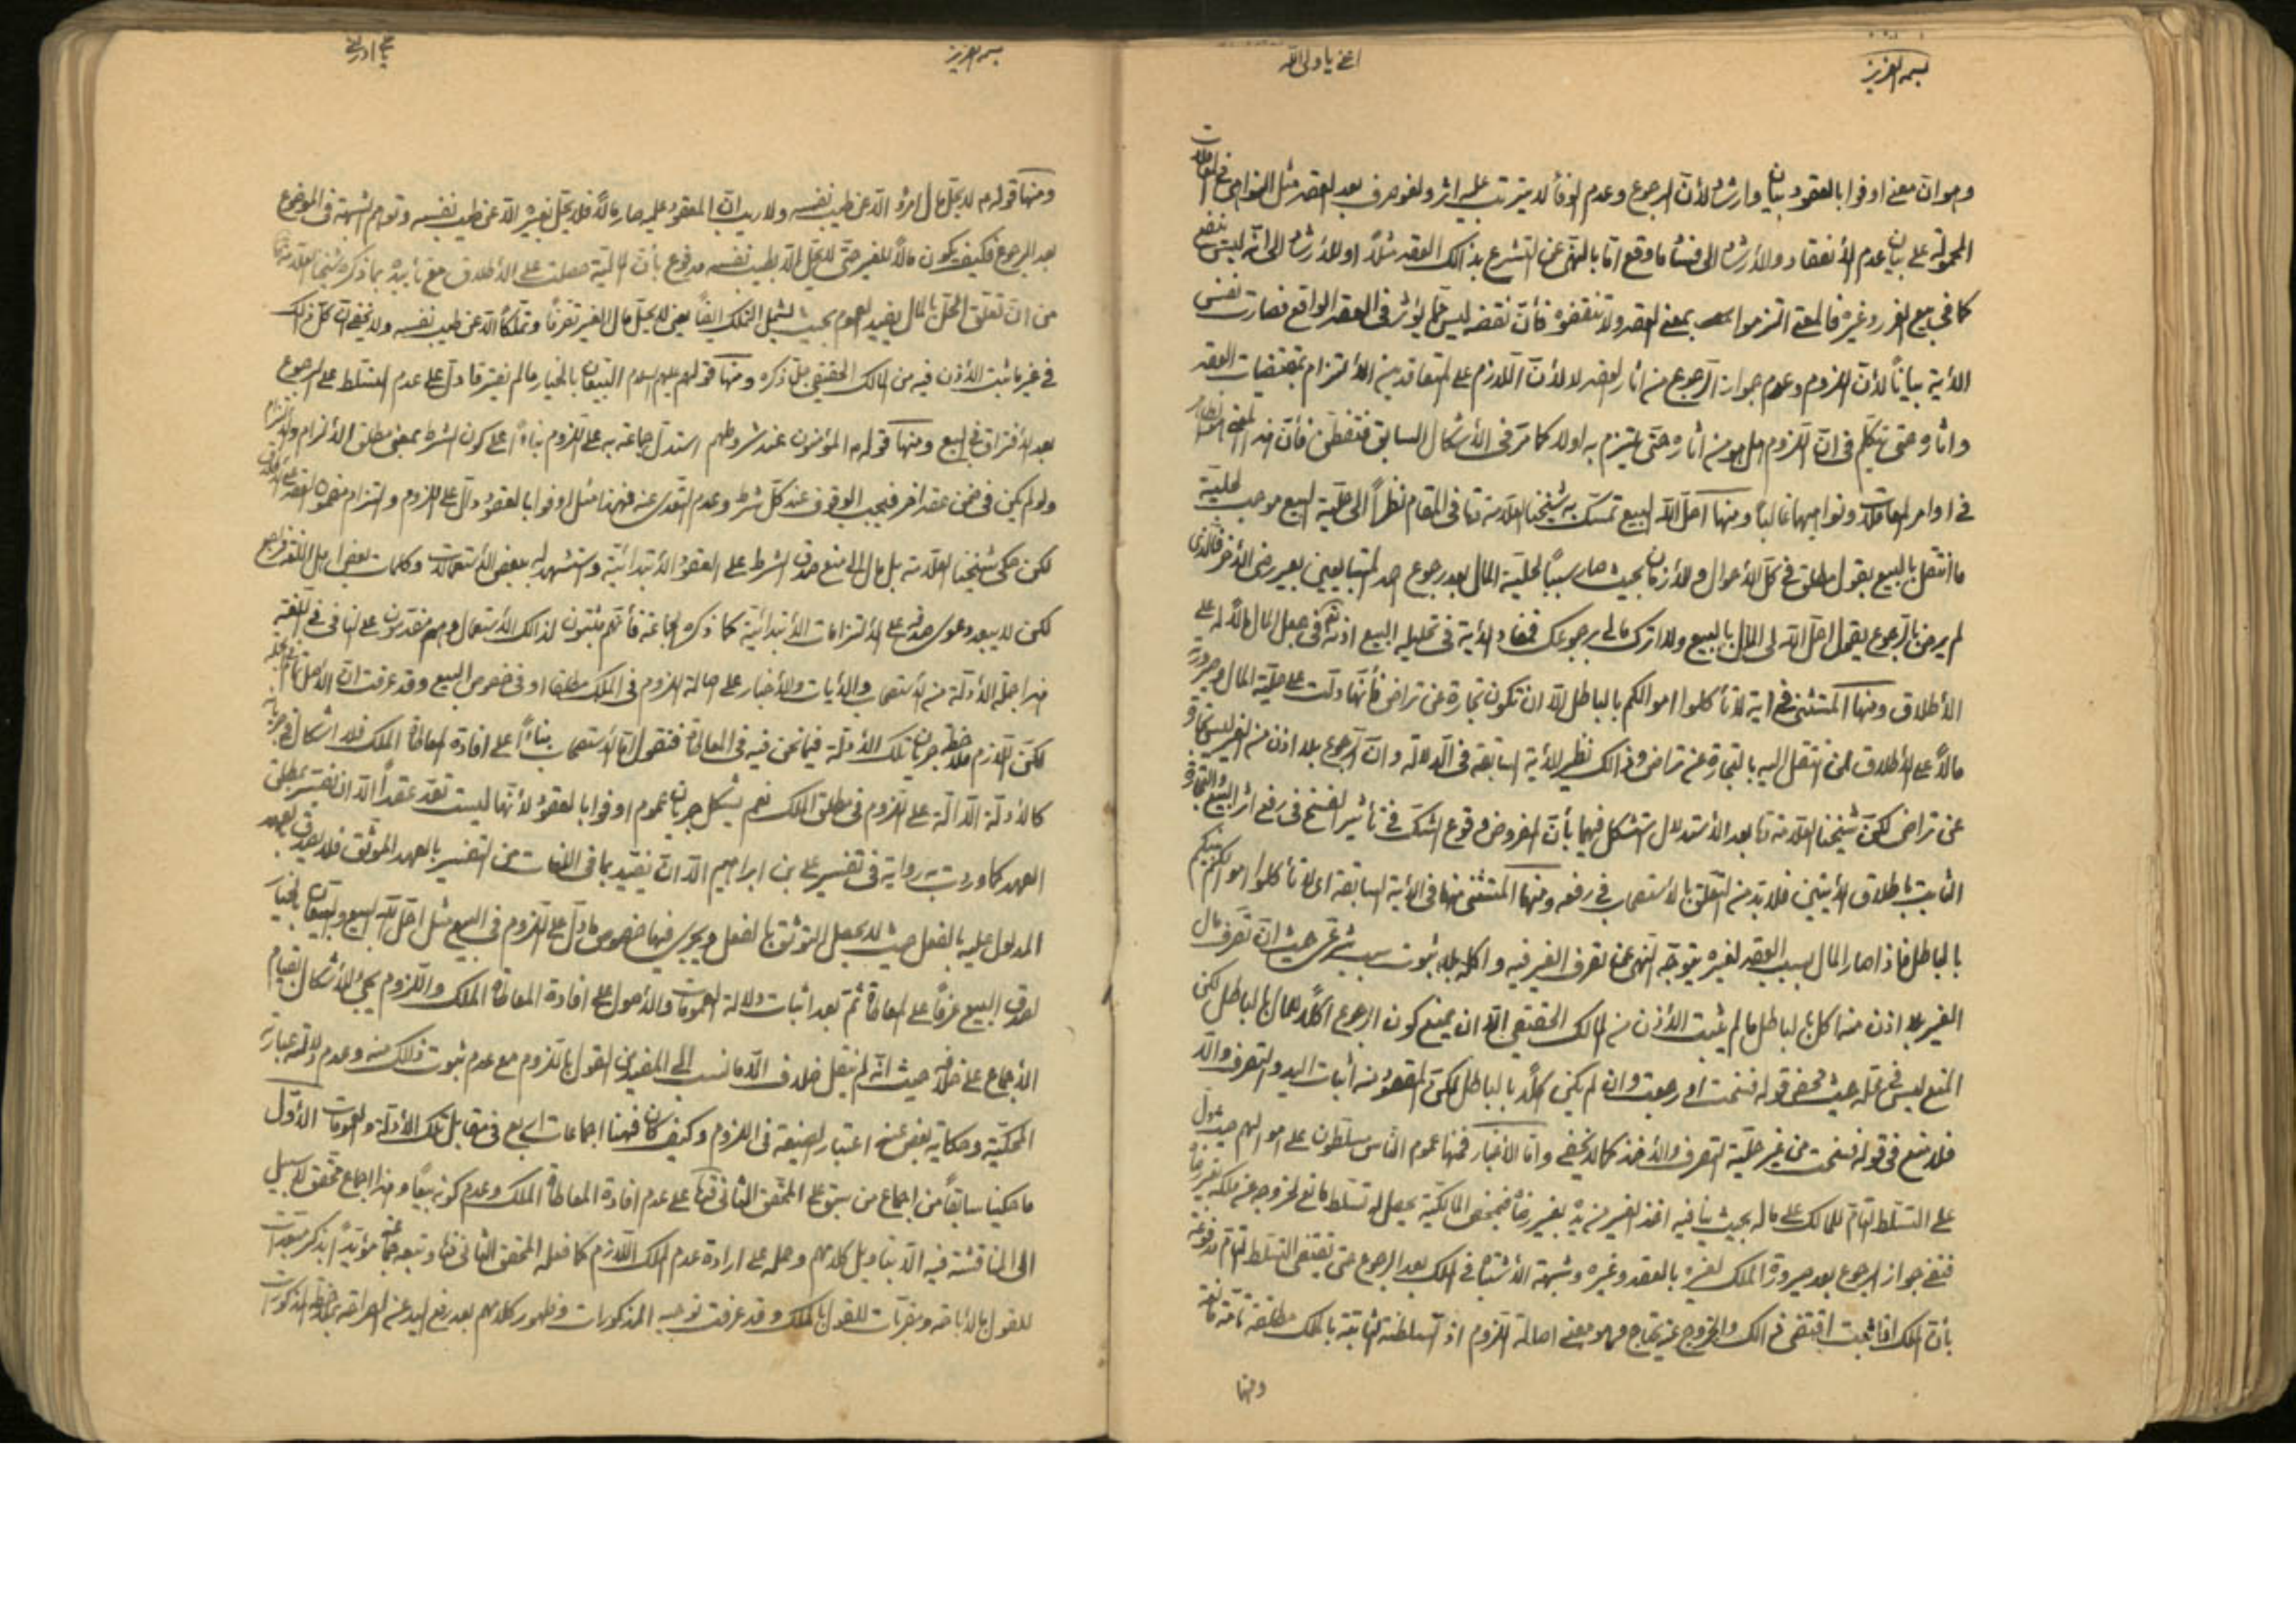 بسمه العزيز
اغثني يا ولي الله
وهو ان معنى اوفوا بالعقود بيان وارشاد لأن الرجوع وعدم الوفاء لا يترتب عليه اثر ولغو صرف بعد العقد مثل النواهي في المعاملات
المحمولة على بيان عدم الأنعقاد والأرشاد الى فساد ما وقع اما بالنهي عن التشرع بذلك العقد مثلاً او للأرشاد الى انه ليس
كما في بيع الغرر وغيره فالمعنى التزموا بمعنى العقد ولا تنقضوه فأن نقضه ليس مما يؤثر في العقد الواقع فصارت نفس
الأية بياناً لأن اللزوم وعدم جواز الرجوع من اثار العقد لا لأن اللازم على المتعاقدين الألتزام بمقتضيات العقد
واثاره حتى نتكلم في ان اللزوم هل هو من اثاره حتى يلتزم به اولا كما مر في الأشكال السابق فتفطن فأن هذا المعنى
في اوامر المعاملات ونواهيها غالباً ومنها احل الله البيع تمسك به شيخنا العلامة في المقام نظراً الى حلية البيع موجب لحلية
ما انتقل بالبيع بقول مطلق في كل الأحوال والأزمان بحيث صار سبباً لحلية المال بعد رجوع احد المتبايعين بغير رضى الأخر فالذي
لم يرض بالرجوع يقول احل الله لي المال بالبيع ولا اترك مالي برجوعك فمفاد الأية في تحليله البيع في جعل المال مالاً له على
الأطلاق ومنها المستثنى في اية لا تأكلوا اموالكم بالباطل الا ان تكون تجارة عن تراض فأنها دلت على حلية المال وصيرورته
مالاً على الأطلاق لمن انتقل اليه بالتجارة عن تراض وذالك نظير الأية السابقة في الدلالة وان الرجوع بلا اذن من الغير ليس تجارة
عن تراض لكن شيخنا العلامة بعد الأستدلال استشكل فيهما بأن المفروض وقوع الشك في تأثير الفسخ في رفع اثر البيع والتجارة
الثابت بأطلاق الأيتين فلا بد من التعلق بالأستصحاب في رفعه ومنها المستثنى منها في الأية السابقة اي لا تأكلوا اموالكم بينكم
بالباطل فاذا صار المال بسبب العقد لغيره يتوجه النهي عن تصرف الغير فيه واكله بلا ثبوت سبب شرعي حيث ان تصرف مال
الغير بلا اذن منه اكل بالباطل ما لم يثبت الأذن من المالك الحقيقي الا ان يمنع كون الرجوع اكلاً للمال بالباطل لكن
المنع ليس في محله حيث محض قوله فسخت او رجعت وان لم يكن اكلاً بالباطل لكن المقصود منه اثبات اليد والتصرف والا
فلا منع في قوله فسخت من غير حلية التصرف والأخذ كما لا يخفى واما الأخبار فمنها عموم الناس مسلطون على اموالهم حيث دل
على التسلط التام للمالك على ماله بحيث ينافيه اخذ الغير من يده بغير رضاه فبمحض المالكية يحصل له تسلط مانع لخروجه عن ملكه بغير رضاه
فنفي جواز الرجوع بعد صيرورة الملك لغيره بالعقد وغيره وشبهة الأشتباه في الملك بعد الرجوع حتى يقتضى التسلط التام مدفوعة
بأن الملك اذا ثبت اقتضى ذالك والخروج عنه يحتاج وهو معنى اصالة اللزوم اذ السلطنة الثابتة بالملك مطلقة تامة مانعة
ومنها
بسمه العزيز
ومنها قوله لا يحل مال امرء الا عن طيب نفسه ولا ريب ان المعقود عليه صار مالاً فلا يحل لغيره الا عن طيب نفسه وتوهم الشبهة في الموضوع
بعد الرجوع فكيف يكون مالاً للغير حتى لا يحل الا بطيب نفسه مدفوع بأن المالية حصلت على الأطلاق مع تأييده بما ذكره شيخنا العلامة
من ان تعلق الحل بالمال يفيد العموم بحيث يشمل التملك ايضاً يعني لا يحل مال الغير تصرفاً وتملكاً الا عن طيب نفسه ولا يخفى ان كل ذلك
في غير ما ثبت الأذن فيه من المالك الحقيقي جل ذكره ومنها قولهم عليهم السلام البيعان بالخيار ما لم يفترقا دل على عدم التسلط على الرجوع
بعد الأفتراق في البيع ومنها قوله المؤمنون عند شروطهم استدل جماعة به على اللزوم بناءً على كون الشرط بمعنى مطلق الألزام والألتزام
ولو لم يكن في ضمن عقد اخر فيجب الوقوف عند كل شرط وعدم التعدي عنه فهذا مثل اوفوا بالعقود دال على اللزوم والتزام مضمون العقد على
لكن حكى شيخنا العلامة بل مال الى منع صدق الشرط على العقود الأبتدائية واستشهد له ببعض الأستعمالات وكلمات بعض اهل اللغة فراجع
لكن لا يبعد دعوى صدقه على الألتزامات الأبتدائية كما ذكره الجماعة فأنهم مثبتون لذالك الأستعمال وهم مقدمون على النافي في اللغة
هذا جملة الأدلة من الأستصحاب والأيات والأخبار على اصالة اللزوم في الملك مطلقا او في خصوص البيع وقد عرفت ان الأصل تام
لكن اللازم ملاحظة جريان تلك الأدلة فيما نحن فيه في المعاطاة فنقول اما الأستصحاب بناءً على افادة المعاطاة الملك فلا اشكال في جريانه
كالأدلة الدالة على اللزوم في مطلق الملك نعم يشكل جريان عموم اوفوا بالعقود لأنها ليست تعد عقداً الا ان تفسر بمطلق
العهد كما وردت به رواية في تفسير علي بن ابراهيم الا ان نقيد بما في اللغات من التفسير بالعهد الموثق فلا يصدق العهد
المدلول عليه بالفعل حيث لا يحصل التوثق بالفعل ويجري فيها خصوص ما دل على اللزوم في البيع مثل احل الله البيع والبيعان بالخيار
لصدق البيع عرفاً على المعاطاة ثم بعد اثبات دلالة العمومات والأصول على افادة المعاطاة الملك واللزوم يجيء الأشكال بقيام
الأجماع على خلافه حيث انه لم ينقل خلاف الا ما نسب الى المفيد من القول باللزوم مع عدم ثبوت ذلك منه وعدم دلالة عبارته
المحكية وحكاية بعض عنه اعتبار الصيغة في اللزوم وكيف كان فهنا اجماعات اربع في مقابل تلك الأدلة والعمومات الأول
ما حكينا سابقاً من اجماع من سبق على المحقق الثاني على عدم افادة المعاطاة الملك وعدم كونه بيعاً وهذا اجماع محقق لا سبيل
الى المناقشة فيه الا بتأويل كلامهم وحمله على ارادة عدم الملك اللازم كما فعله المحقق الثاني وتبعه جماعة مؤيداً بذكر مبعدات
للقول بالأباحة ومقربات للقول بالملك وقد عرفت توجيه المذكورات وظهور كلامهم بعد رفع اليد عن الصراحة بملاحظة المذكورات